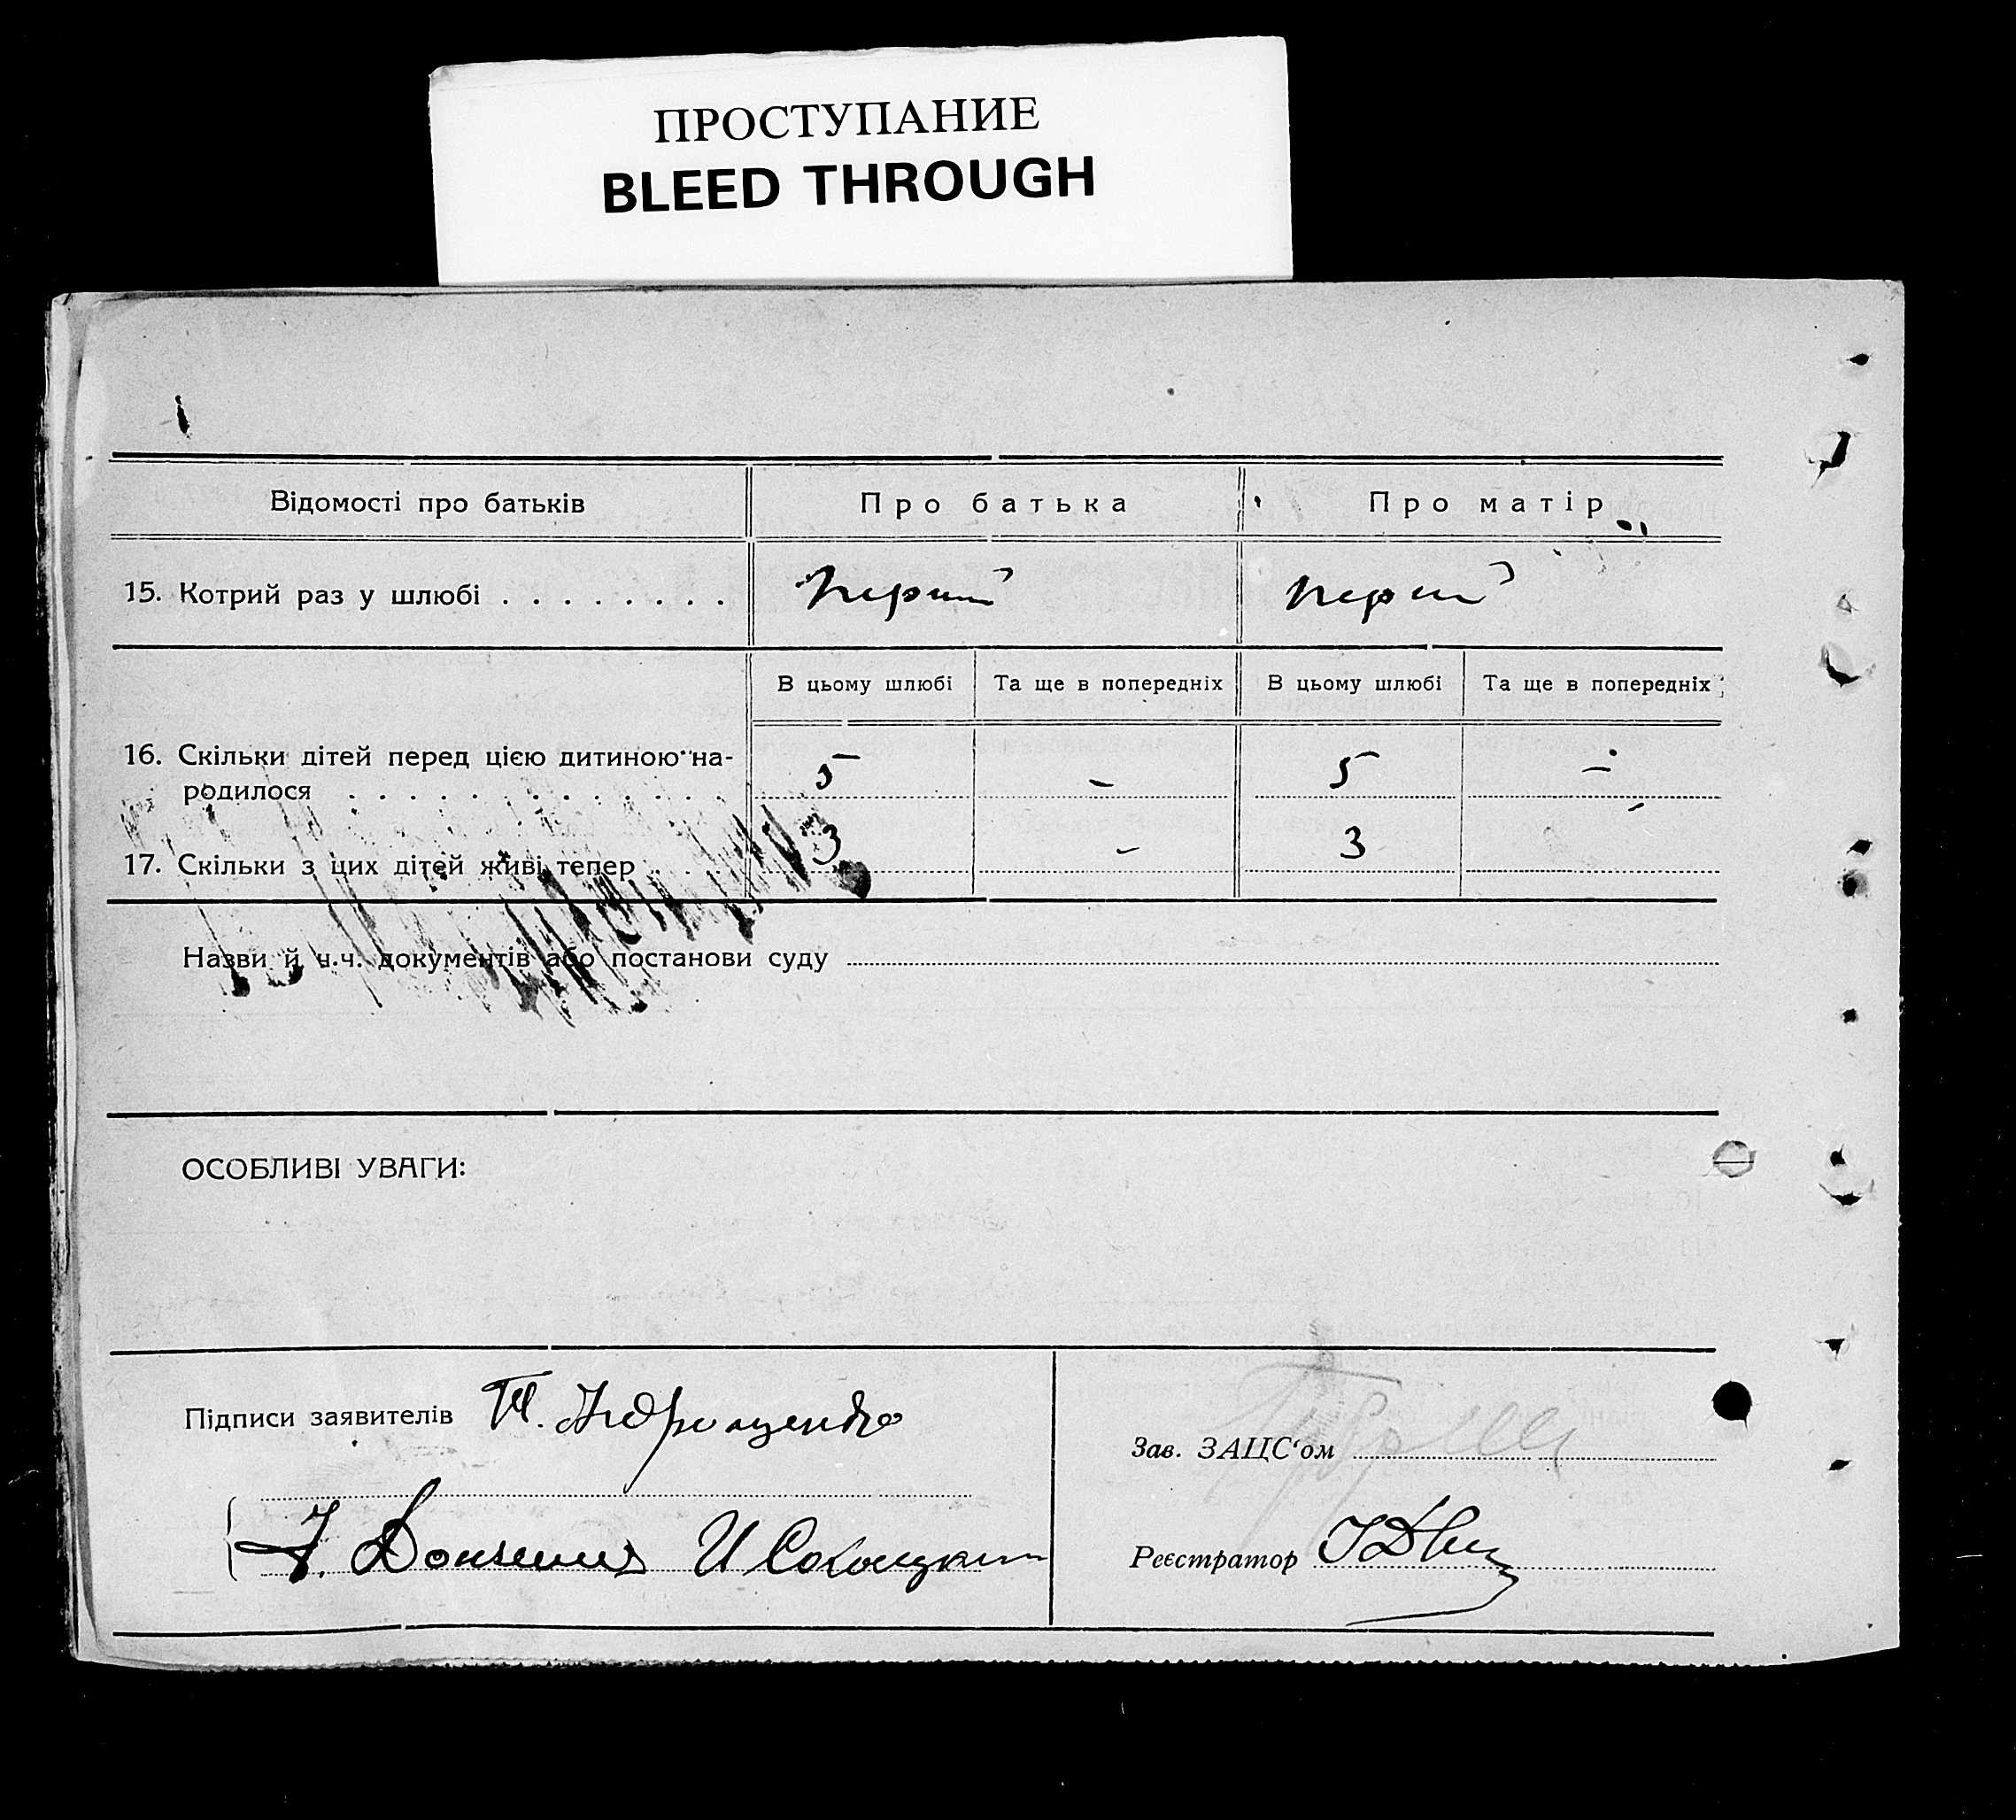 ПРОСТУПАНИЕ
BLEED THROUGH
Відомості про батьків Про батька Про матір
15. Котрий раз у шлюбі . . . . . . . . Перший Перший
В цьому шлюбі Та ще в попередніх В цьому шлюбі Та ще в попередніх
16. Скільки дітей перед цією дитиною на-
родилося . . . . . . . . . . . . 5 - 5 -
17. Скільки з цих дітей живі тепер . . . 3 - 3 -
Назви й ч.ч. документів або постанови суду
ОСОБЛИВІ УВАГИ:
Підписи заявителів
Зав. ЗАЦС'ом
Реєстратор